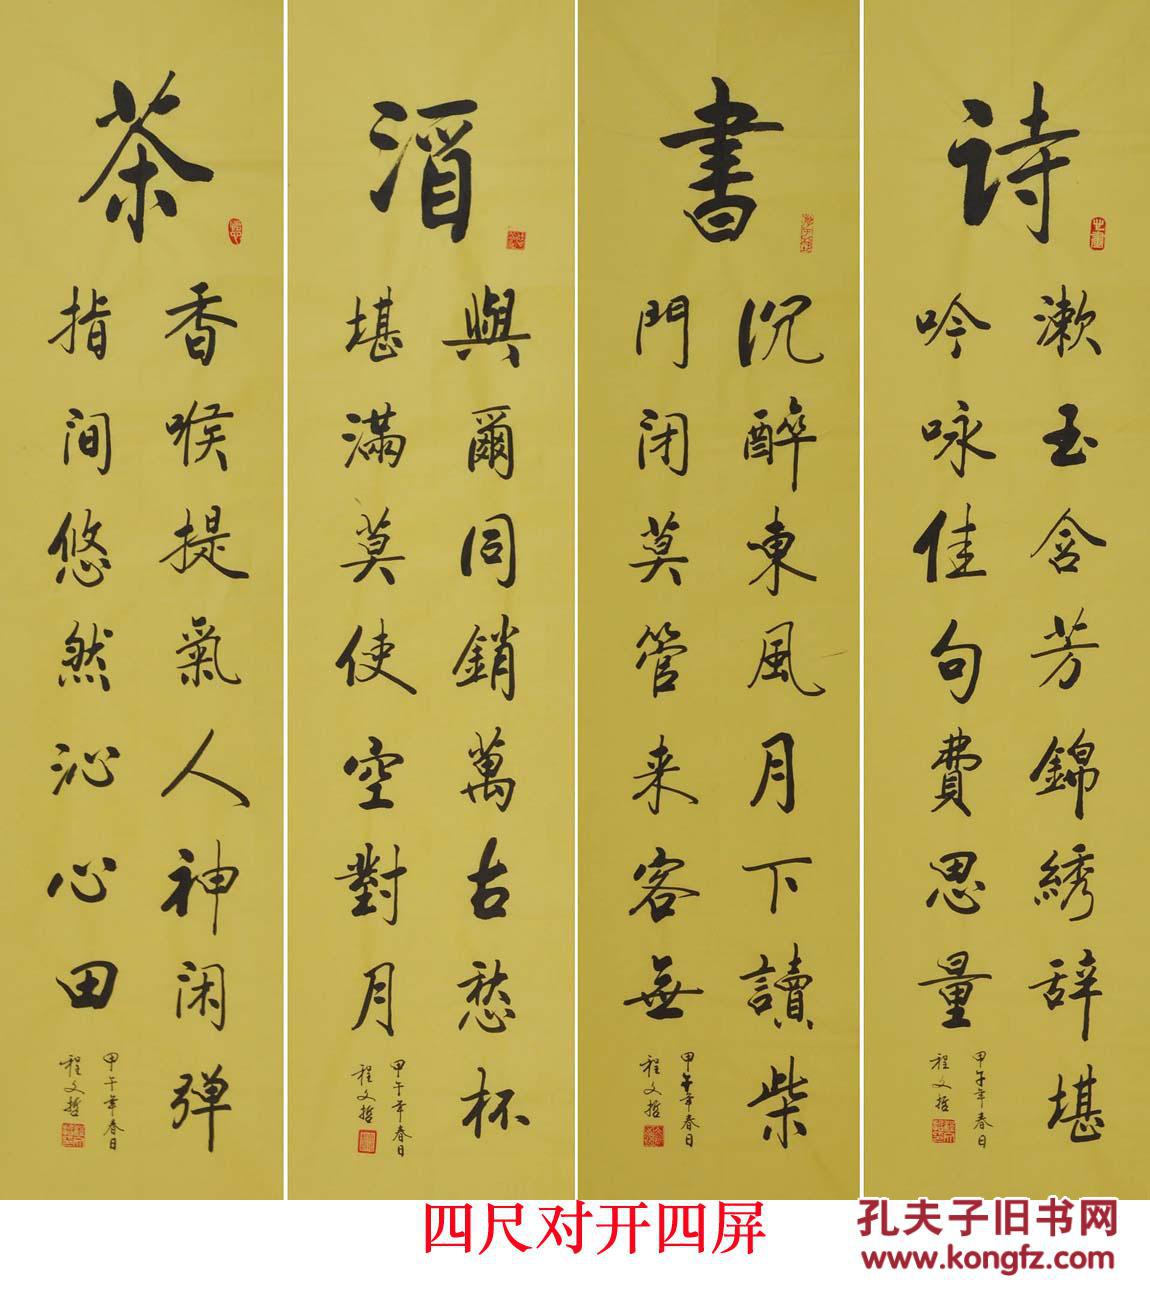 詩
漱玉含芳錦綉辞堪
吟咏佳句費思量
甲午年春日
程文哲
書
沉醉東風月下讀柴
門闭莫管来客無
甲午年春日
程文哲
酒
與爾同銷萬古愁杯
堪滿莫使空對月
甲午年春日
程文哲
茶
香喉提氣人神闲弹
指间悠然沁心田
甲午年春日
程文哲
四尺对开四屏
孔夫子旧书网
www.kongfz.com